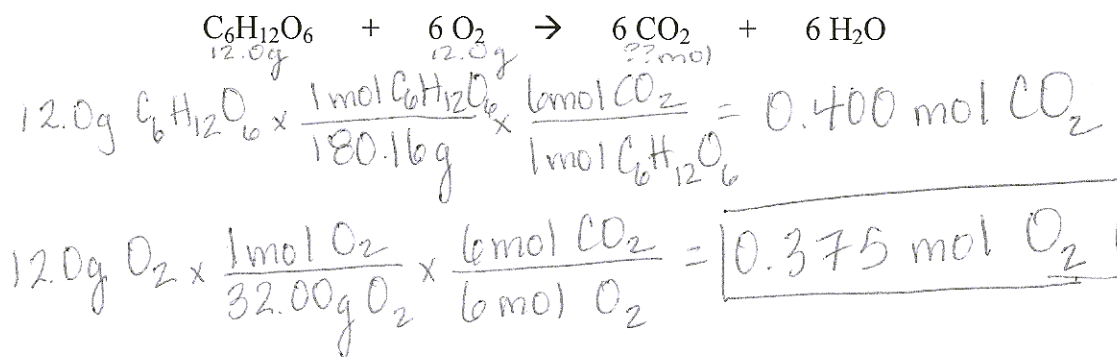 C₆H₁₂O₆ + 6 O₂ → 6 CO₂ + 6 H₂O
12.0g 12.0g ??mol
12.0g C₆H₁₂O₆ x 1mol C₆H₁₂O₆ / 180.16g x 6mol CO₂ / 1mol C₆H₁₂O₆ = 0.400 mol CO₂
12.0g O₂ x 1mol O₂ / 32.00g O₂ x 6mol CO₂ / 6mol O₂ = 0.375 mol O₂